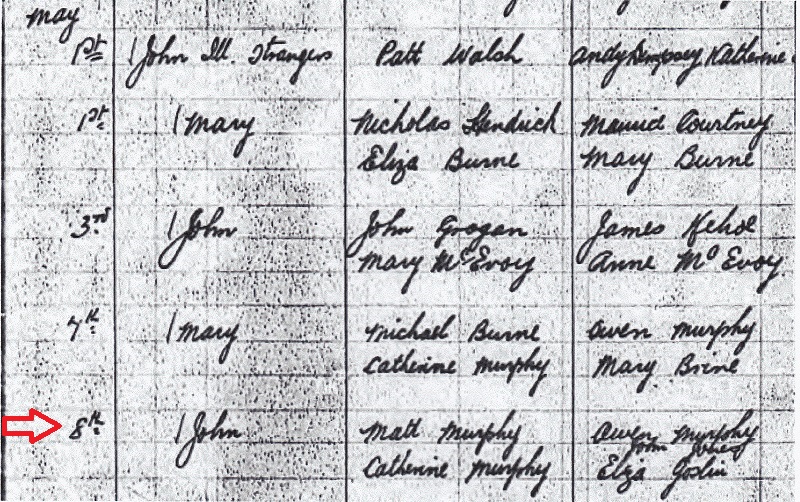 May
1st 1 John Ill. Strangers Patt Walsh Andy Dempsey Katherine
1st 1 Mary Nicholas Hendrick Courtney
Eliza Burne Mary Burne
3rd 1 John John Grogan James Kehoe
Mary McEvoy Anne McEvoy
7th 1 Mary Michael Burne Owen Murphy
Catherine Murphy Mary Brine
8th 1 John Matt Murphy Owen Murphy
John Jones
Catherine Murphy Eliza Goslin